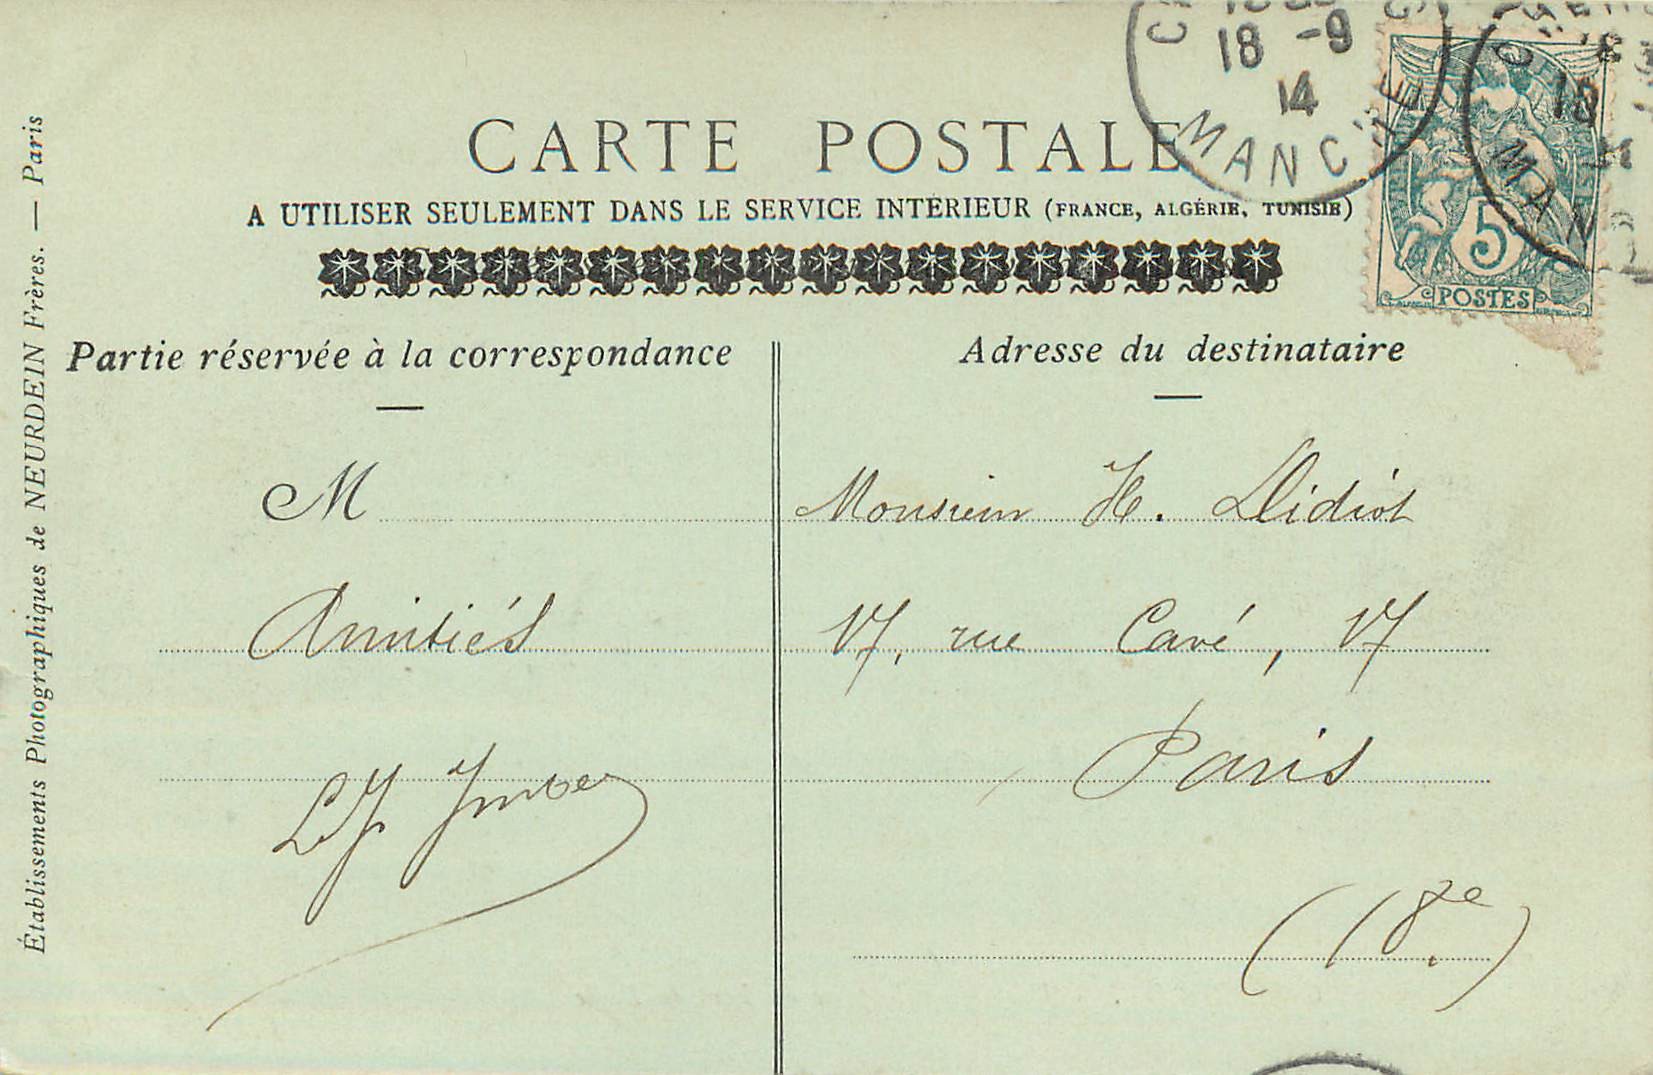 18 -9
14
MANCHE
18
MAN
CARTE POSTALE
A UTILISER SEULEMENT DANS LE SERVICE INTÉRIEUR (FRANCE, ALGÉRIE, TUNISIE)
5
POSTES
Partie réservée à la correspondance
Adresse du destinataire
M
Amitiés
Monsieur H. Didiot
17, rue Cavé, 17
Paris
(18e.)
Établissements Photographiques de NEURDEIN Frères. — Paris